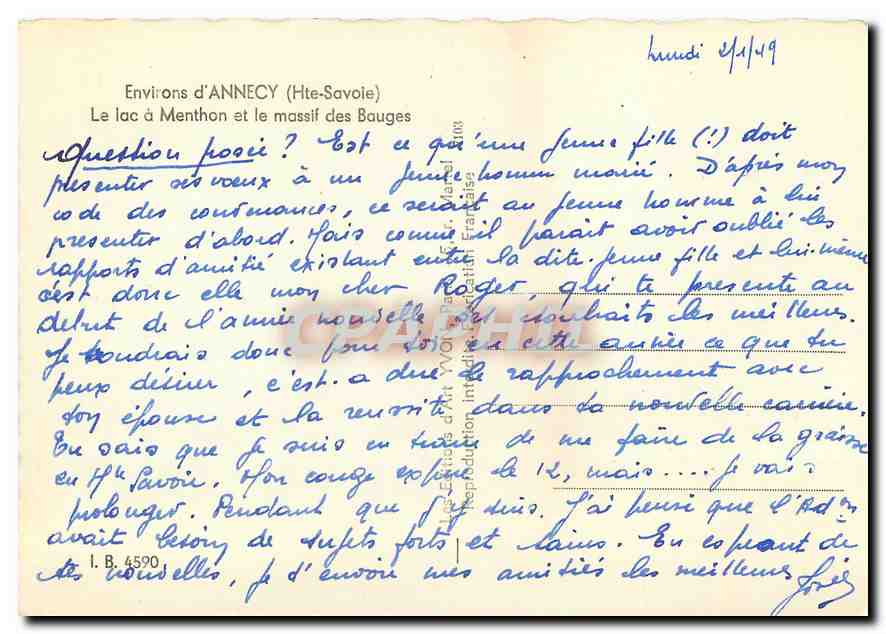 lundi 2/1/49
Environs d'ANNECY (Hte-Savoie)
Le lac à Menthon et le massif des Bauges
Question posée ? Est ce qu'une jeune fille (!) doit
presenter ses voeux à un jeune homme marié. D'après mon
code des convenances, ce serait au jeune homme à lui
presenter d'abord. Mais comme il parait avoir oublié les
rapports d'amitié existant entre la dite jeune fille et lui-même
c'est donc elle mon cher Roger, qui te presente au
debut de l'année nouvelle ses souhaits les meilleurs.
Je voudrais donc pour toi en cette année ce que tu
peux désirer, c'est-a dire le rapprochement avec
ton épouse et la reussite dans ta nouvelle carrière.
Tu sais que je suis en train de me faire de la graisse
en Hte Savoie. Mon conge expire le 12, mais.... je vais
prolonger. Pendant que j'y suis. J'ai pensé que l'Adon
avait besoin de sujets forts et sains. En esperant de
tes nouvelles, je t'envoie mes amitiés les meilleures
Les Editions d'Art YVON, Paris, Fr. Martel 2103
Reproduction Interdite Fabrication Française
I. B. 4590
CPARAMA